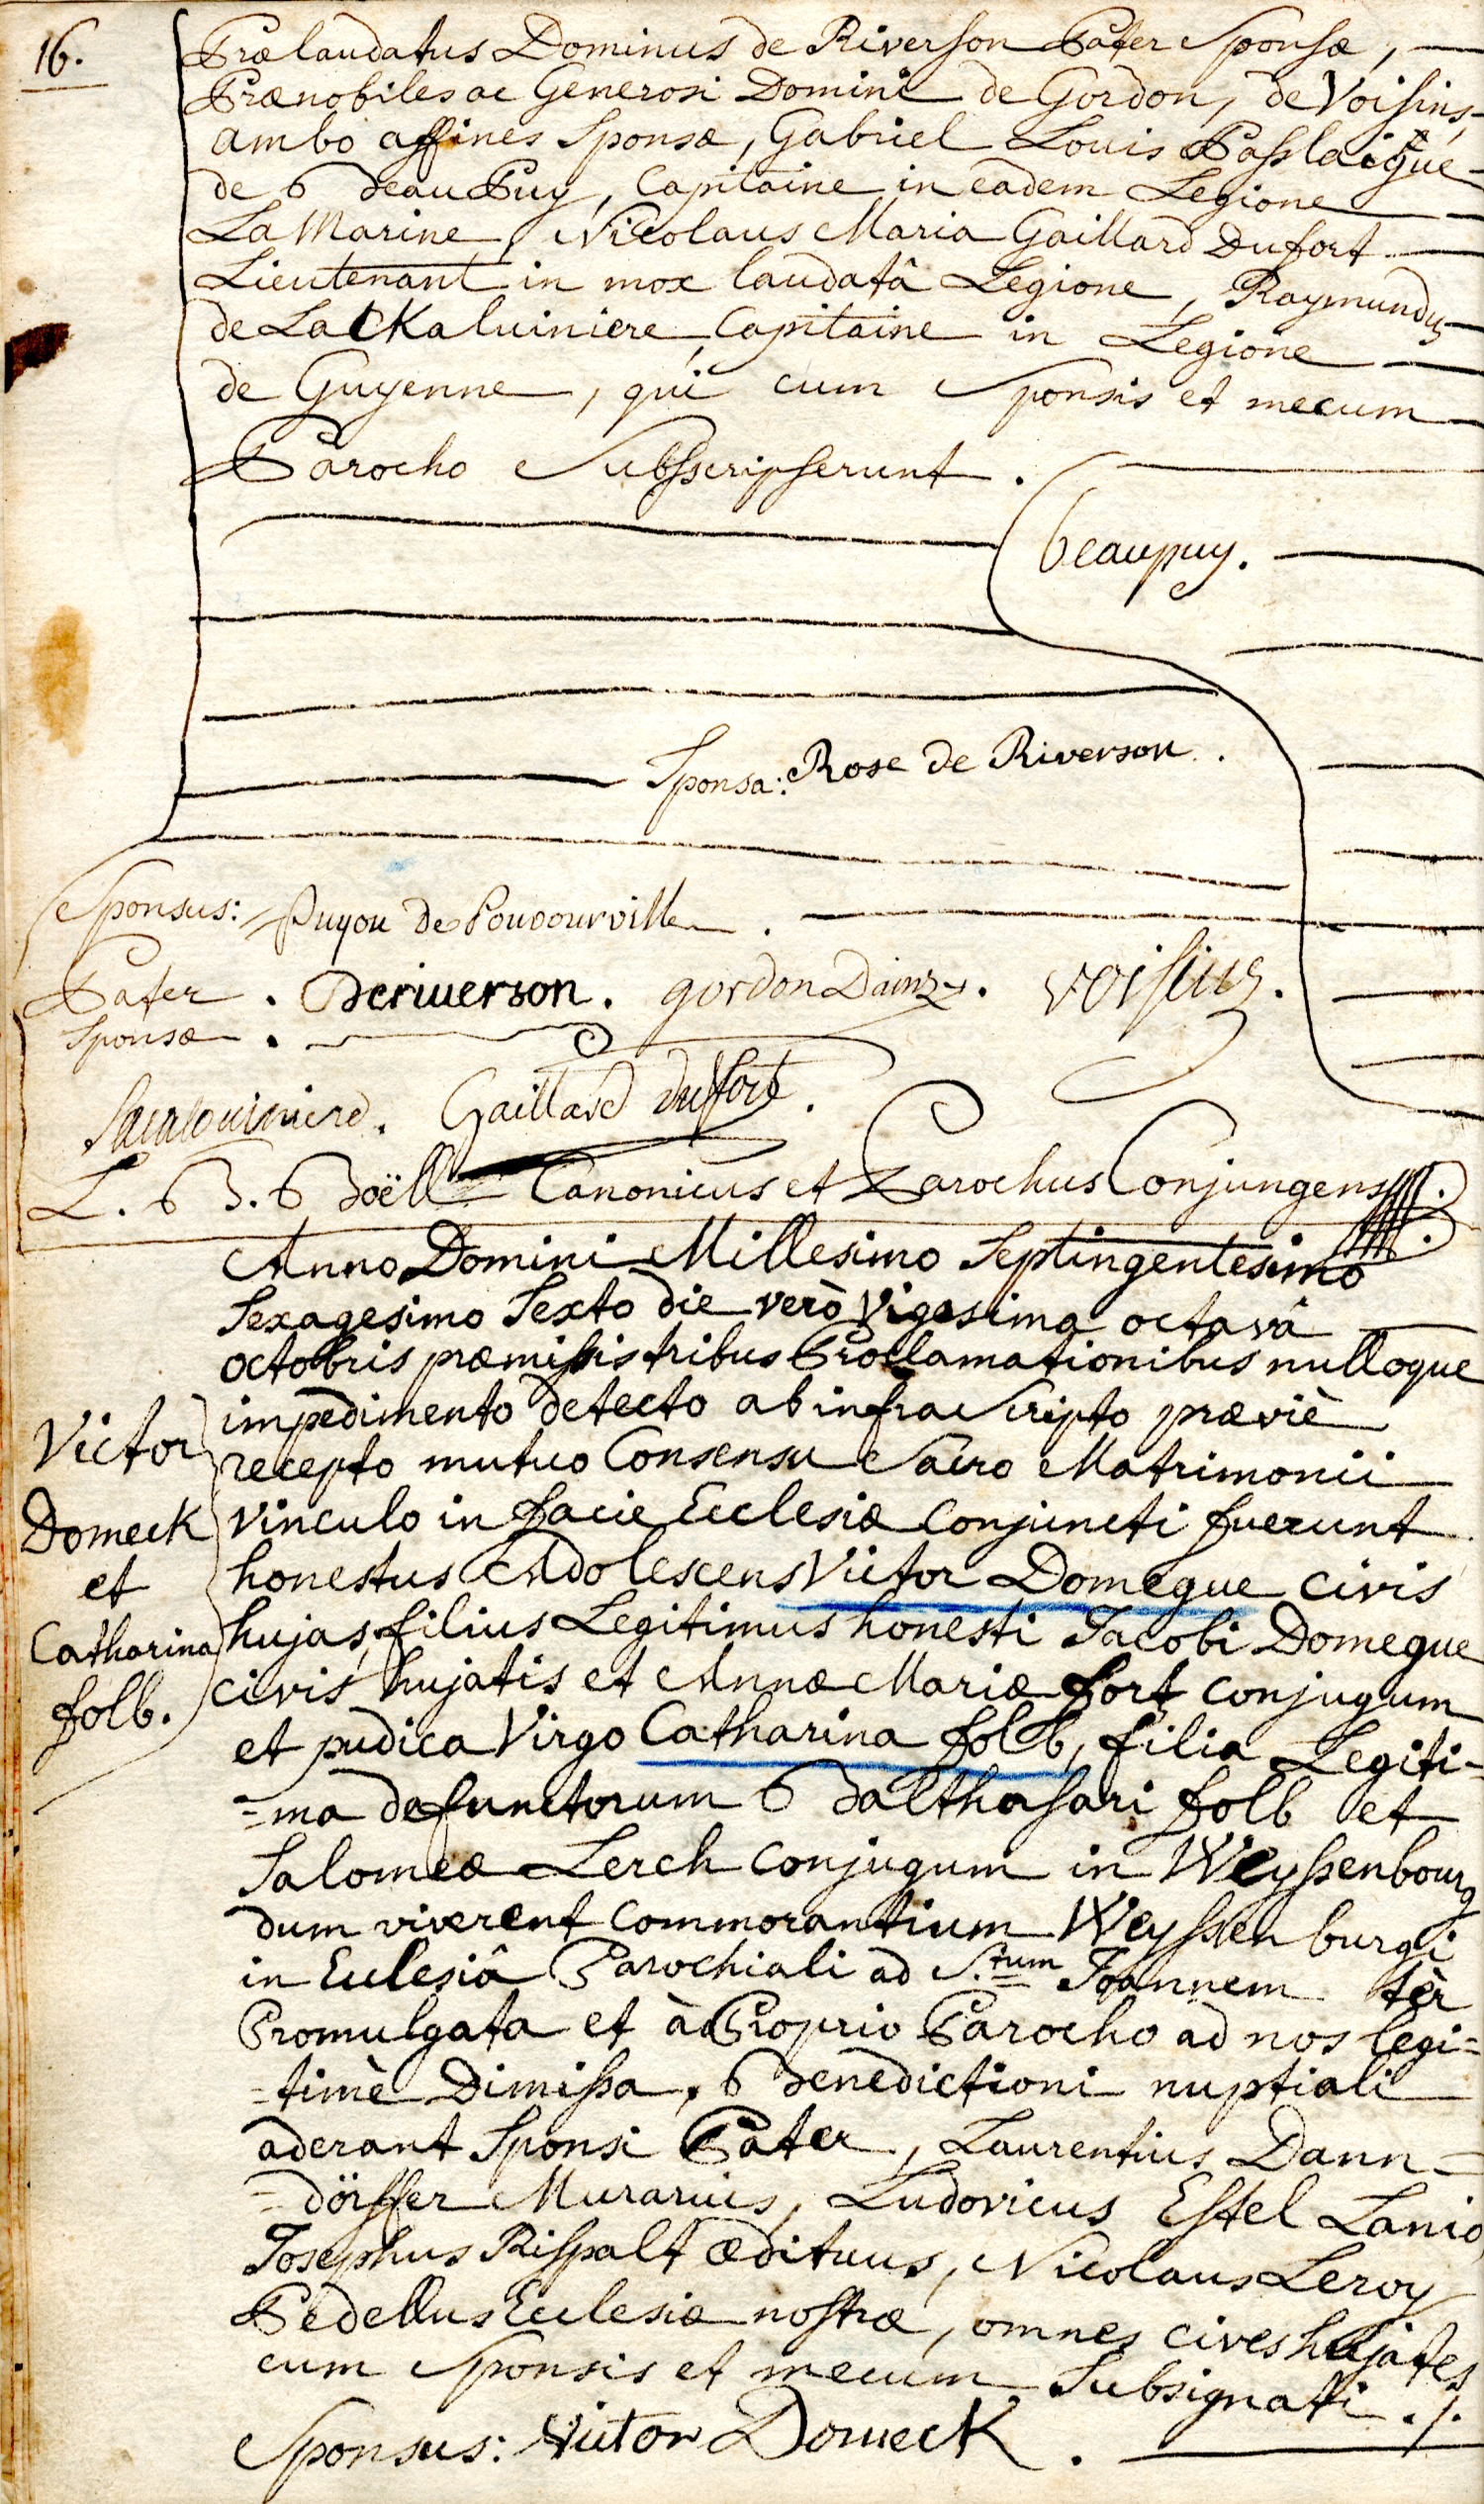 16.
Prælaudatus Dominus de Riverson Pater Sponsæ,
Prænobiles ac Generosi Domini de Gordon, de Voisins,
ambo affines Sponsæ, Gabriel Louis
de BeauPuy, Capitaine in eadem Legione
La Marine, Nicolaus Maria Gaillard Dufort
Lieutenant in mox laudatâ Legione, Raymundus
de Capitaine in Legione
de Guyenne, qui cum Sponsis et mecum
Parocho Subscripserunt.
beaupuy.
Sponsa: Rose de Riverson.
Sponsus: Puyou de Pouvourville.
Pater . Deriverson. gordon voisins.
Sponsæ .
Gaillard duffort.
L. B. Boëll Canonicus et Parochus Conjungens
Anno Domini Millesimo Septingentesimo
Sexagesimo Sexto die verò Vigesima octavâ
octobris præmissis tribus Proclamationibus nulloque
impedimento detecto ab infra Scripto præviè
recepto mutuo Consensu Sacro Matrimonii
vinculo in facie Ecclesiæ Conjuncti fuerunt
honestus Adolescens Victor Domeque civis
hujas, filius Legitimus honesti Jacobi Domeque
civis hujatis et Annæ Mariæ fort conjugum
et pudica Virgo Catharina folb, filia Legiti-
=ma defunctorum Balthasari folb et
Salomeæ Lerch conjugum in Weyssenbourg
dum viverent commorantium Weyssenburgi
in Ecclesiâ Parochiali ad S.tum Joannem tèr
Promulgata et à Proprio Parocho ad nos legi=
=timè Dimissa, Benedictioni nuptiali
aderant Sponsi Pater, Laurentius Dann=
=dörffer Murarius, Ludovicus Estel Lanio
Josephus Rispalt ædituus, Nicolaus Leroy
Pedellus Ecclesiæ nostræ, omnes cives hujates
cum Sponsis et mecum Subsignati ./.
Sponsus: Victor Domeck.
Victor
Domeck
et
Catharina
folb.